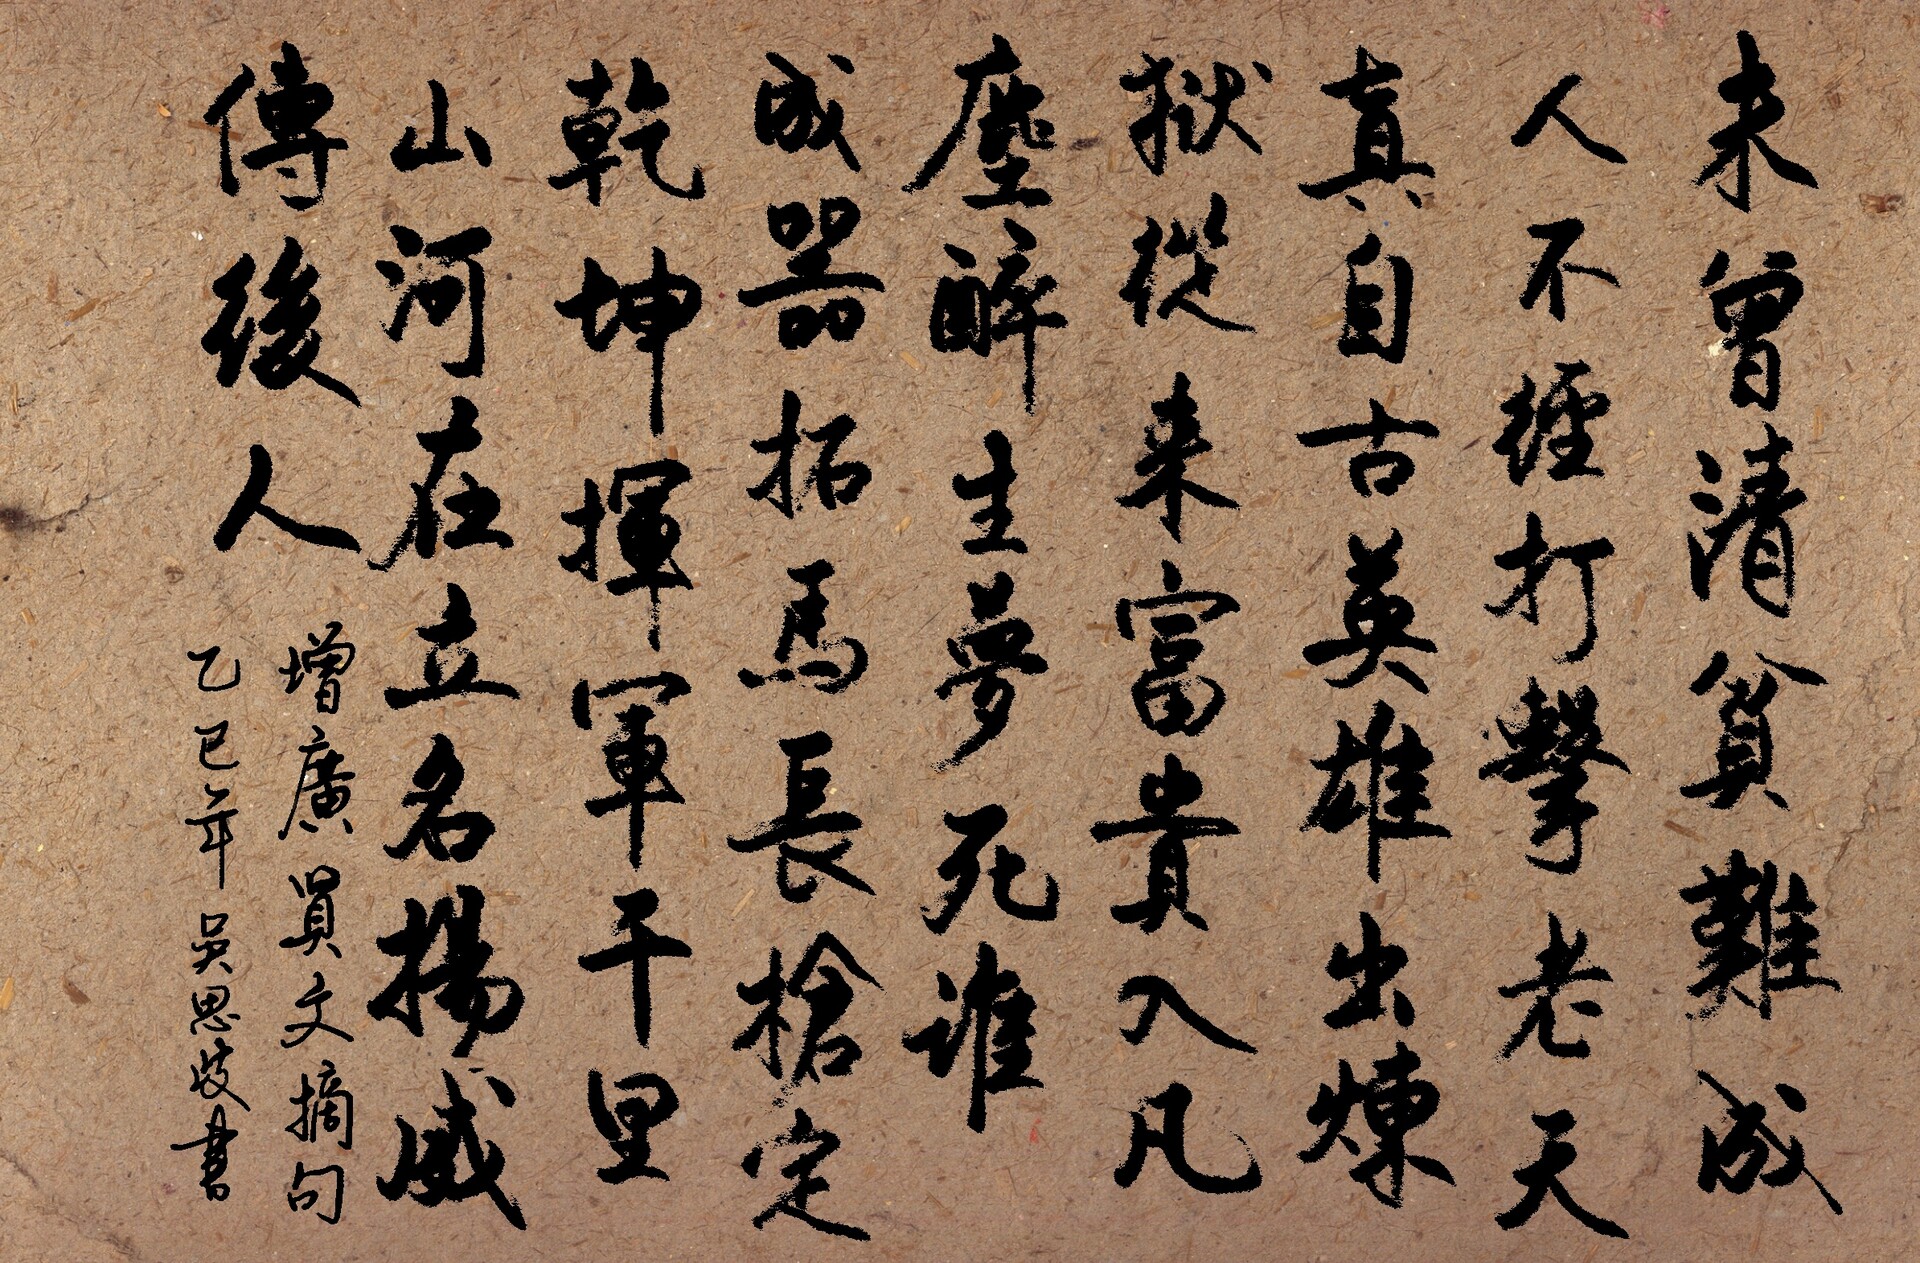 未曾清貧難成
人不經打擊老天
真自古英雄出煉
獄從来富貴入凡
塵醉生夢死谁
成器拓馬長槍定
乾坤揮軍干里
山河在立名揚威
傳後人
增廣賢文摘句
乙巳年吳思歧書